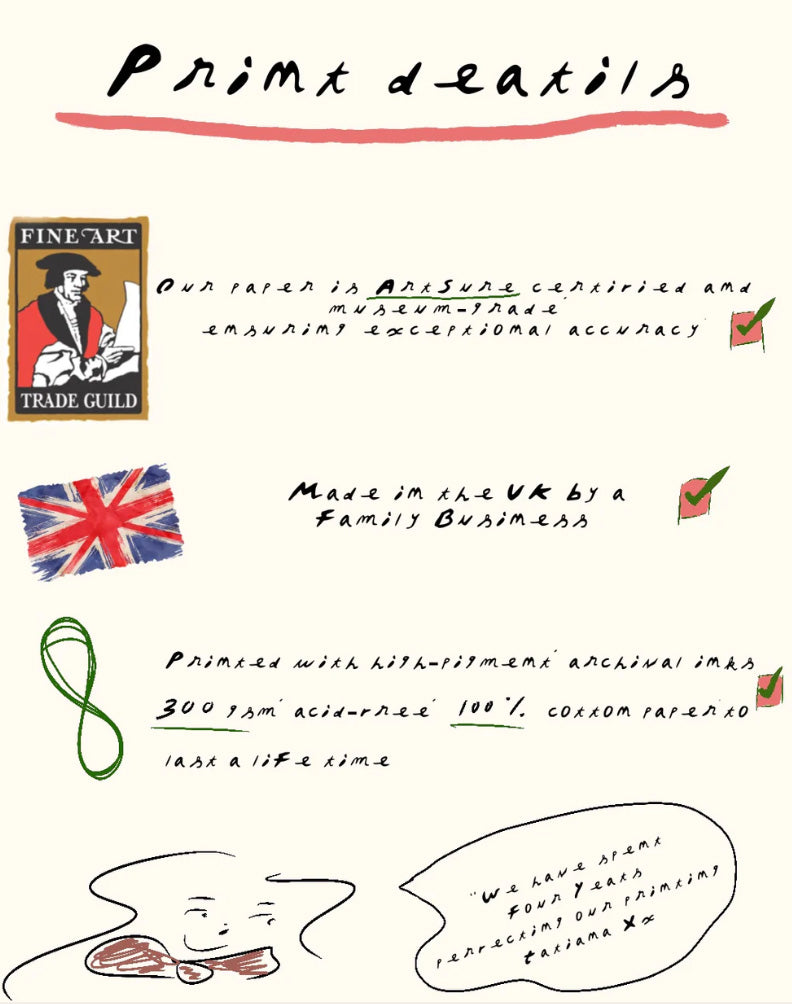 Print deatils
FINE ART
TRADE GUILD
Our paper is ArtSure certified and
museum-grade
ensuring exceptional accuracy
Made in the UK by a
Family Business
Printed with high-pigment archival inks
300gsm acid-free 100% cotton paper to
last a life time
"We have spent
four years
perfecting our printing
tatiana Xx